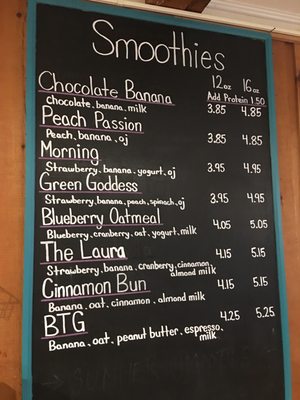 Smoothies
12oz 16oz
Add Protein 1.50
Chocolate Banana 3.85 4.85
chocolate, banana, milk
Peach Passion 3.85 4.85
Peach, banana, oj
Morning 3.95 4.95
Strawberry, banana, yogurt, oj
Green Goddess 3.95 4.95
Strawberry, banana, peach, spinach, oj
Blueberry Oatmeal 4.05 5.05
Blueberry, cranberry, oat, yogurt, milk
The Laura 4.15 5.15
Strawberry, banana, cranberry, cinnamon,
almond milk
Cinnamon Bun 4.15 5.15
Banana, oat, cinnamon, almond milk
BTG 4.25 5.25
Banana, oat, peanut butter, espresso,
milk